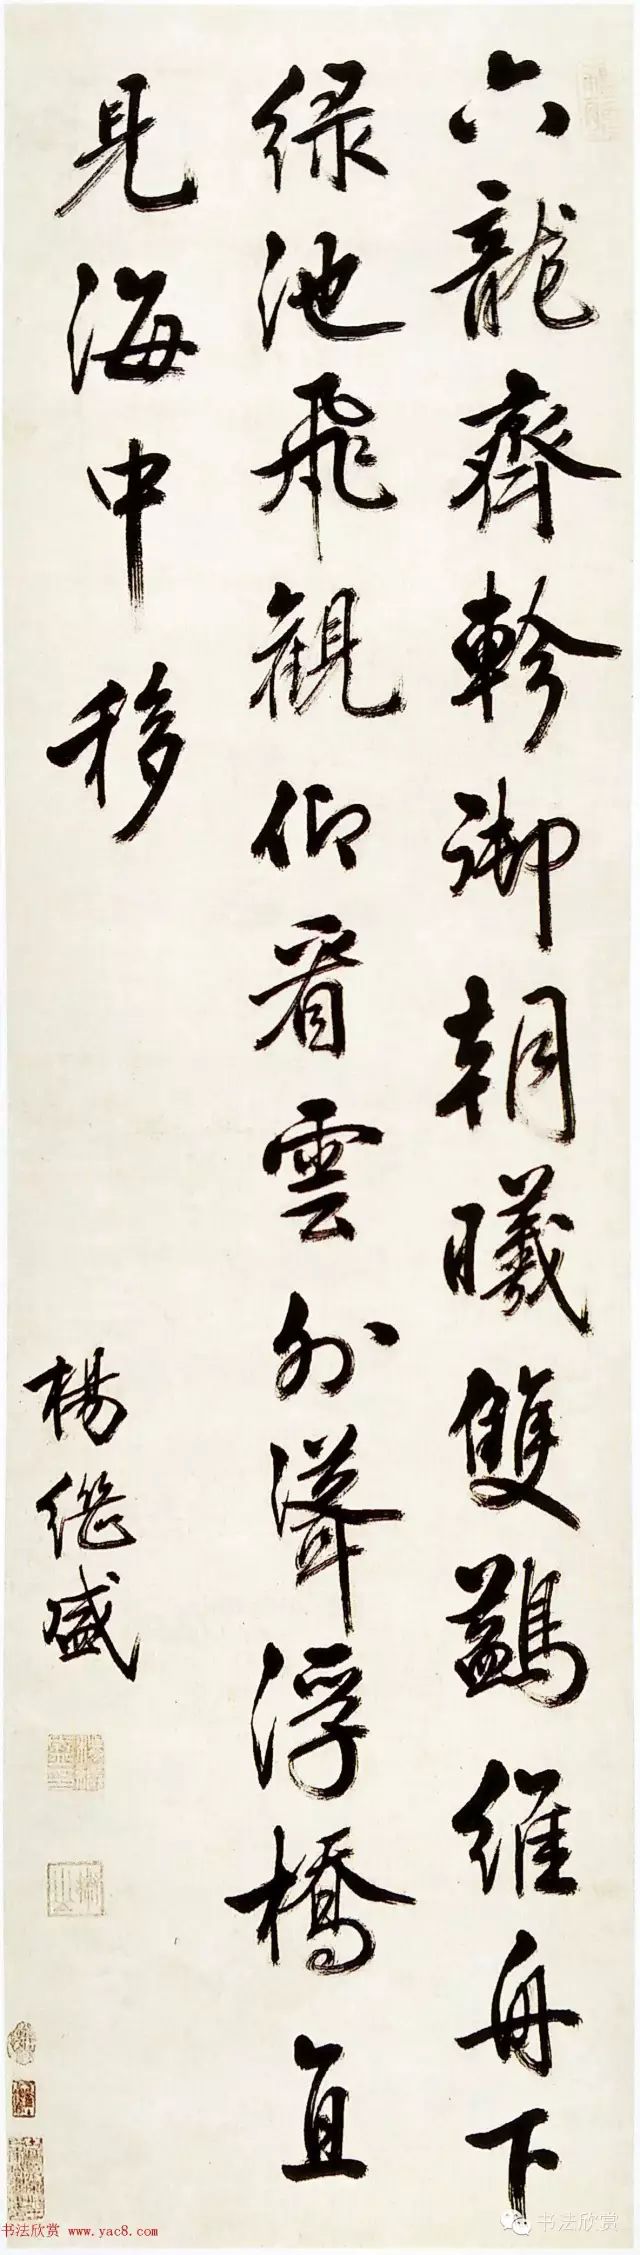 六龍齊軫御朝曦雙鷁維舟下
綠池飛觀仰看雲外聳浮橋直
見海中移
楊繼盛
书法欣赏 www.yac8.com
书法欣赏